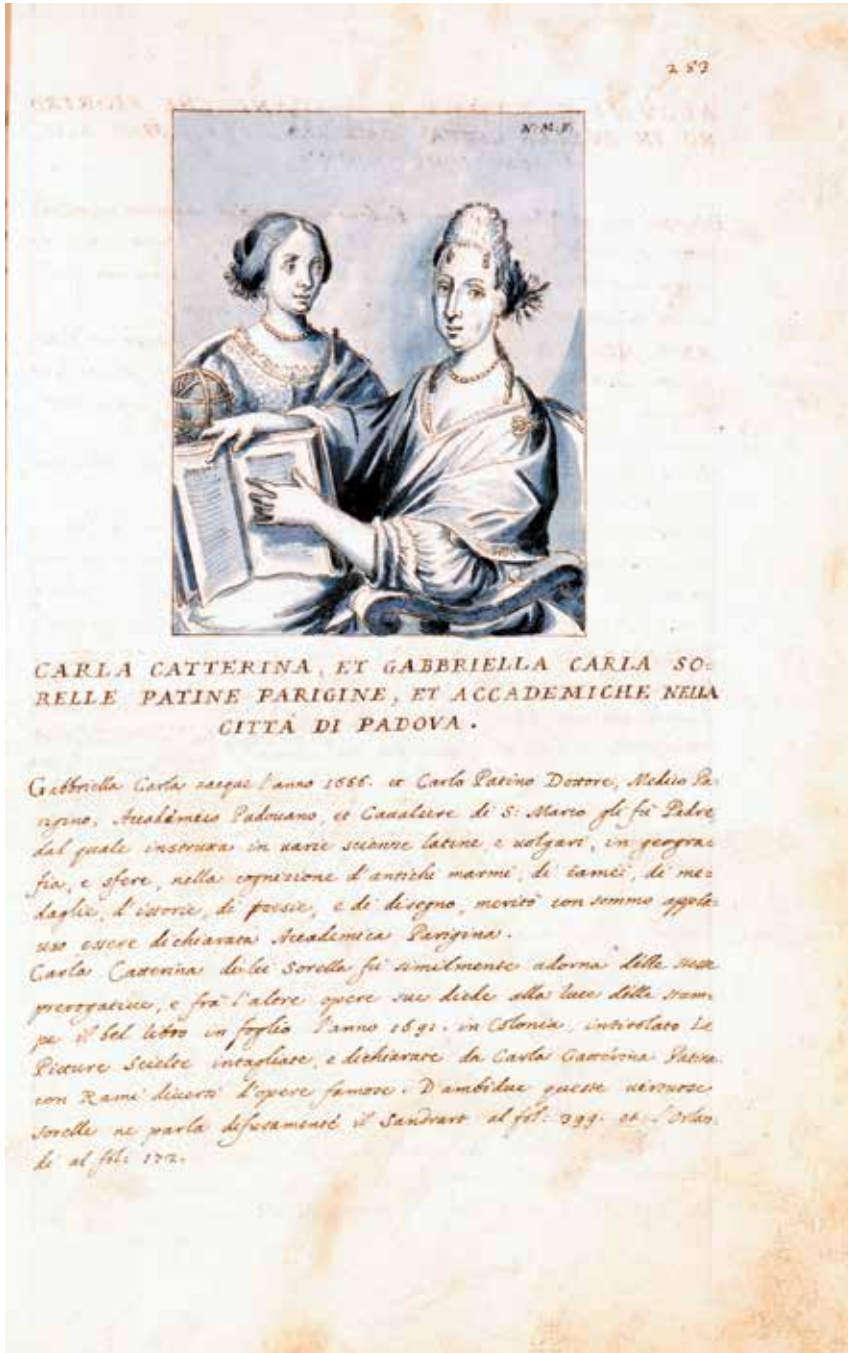 283
N. M. F.
CARLA CATTERINA, ET GABBRIELLA CARLA SO=
RELLE PATINE PARIGINE, ET ACCADEMICHE NELLA
CITTÀ DI PADOVA.
Gabbriella Carla nacque l'anno 1666. et Carlo Patino Dottore, Medico Pa=
rigino, Accademico Padovano, et Cavaliere di S: Marco gli fù Padre
dal quale instrutta in varie scienze latine e volgari, in geogra=
fia, e sfere, nella cognizione d'antichi marmi, di camei, di me=
daglie, d'istorie, di poesie, e di disegno, meritò con sommo appla=
uso essere dichiarata Accademica Parigina.
Carla Catterina di lei Sorella fù similmente adorna delle stesse
prerogative, e frà l'altre opere sue diede alla luce delle stam=
pe il bel libro in foglio l'anno 1691. in Colonia, intitolato Le
Pitture Scielte intagliate, e dichiarate da Carla Catterina Patina
con Rami diversi d'opere famose. D'ambidue queste virtuose
sorelle ne parla difusamente il Sandrart al fol: 399. et l'Orlan=
di al fol: 172.